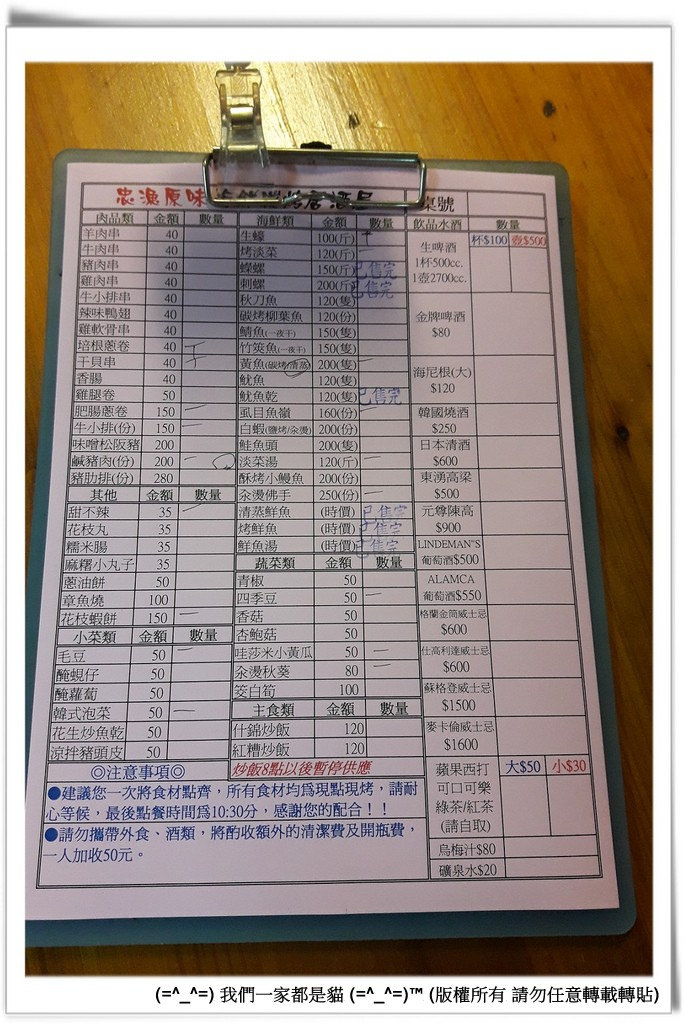 忠漁原味
桌號
肉品類 金額 數量 海鮮類 金額 數量 飲品水酒 數量
羊肉串 40
牛肉串 40
豬肉串 40
雞肉串 40
牛小排串 40
辣味鴨翅 40
雞軟骨串 40
培根蔥卷 40
干貝串 40
香腸 40
雞腿卷 50
肥腸蔥卷 150 一
牛小排(份) 150 一
味噌松阪豬 200
鹹豬肉(份) 200 一
豬肋排(份) 280
其他 金額 數量
甜不辣 35 一
花枝丸 35
糯米腸 35
麻糬小丸子 35
蔥油餅 50
章魚燒 100
花枝蝦餅 150 一
小菜類 金額 數量
毛豆 50 一
醃蜆仔 50
醃蘿蔔 50
韓式泡菜 50 一
花生炒魚乾 50
涼拌豬頭皮 50
生蠔 100(斤)
烤淡菜 120(斤) 一
蠑螺 150(斤) 已售完
刺螺 200(斤) 已售完
秋刀魚 120(隻)
碳烤柳葉魚 120(份)
鯖魚(一夜干) 150(隻)
竹筴魚(一夜干) 150(隻)
黃魚(碳烤/清蒸) 200(隻) 一
魷魚 120(隻)
魷魚乾 120(隻) 已售完
虱目魚嶺 160(份) 一
白蝦(鹽烤/汆燙) 200(份)
鮭魚頭 200(隻)
淡菜湯 120(斤) 一
酥烤小鰻魚 200(份)
汆燙佛手 250(份) 一
清蒸鮮魚 (時價) 已售完
烤鮮魚 (時價) 已售完
鮮魚湯 (時價) 已售完
蔬菜類 金額 數量
青椒 50
四季豆 50 一
香菇 50
杏鮑菇 50
哇莎米小黃瓜 50 一
汆燙秋葵 80 一
筊白筍 100
主食類 金額 數量
什錦炒飯 120
紅糟炒飯 120
炒飯8點以後暫停供應
生啤酒 杯$100 壺$500
1杯500cc.
1壺2700cc.
金牌啤酒
$80
海尼根(大)
$120
韓國燒酒
$250
日本清酒
$600
東湧高梁
$500
元尊陳高
$900
LINDEMAN"S
葡萄酒$500
ALAMCA
葡萄酒$550
格蘭金筒威士忌
$600
仕高利達威士忌
$600
蘇格登威士忌
$1500
麥卡倫威士忌
$1600
蘋果西打 大$50 小$30
可口可樂
綠茶/紅茶
(請自取)
烏梅汁$80
礦泉水$20
◎注意事項◎
●建議您一次將食材點齊，所有食材均爲現點現烤，請耐
心等候，最後點餐時間爲10:30分，感謝您的配合！！
●請勿攜帶外食、酒類，將酌收額外的清潔費及開瓶費，
一人加收50元。
(=^_^=) 我們一家都是貓 (=^_^=)™ (版權所有 請勿任意轉載轉貼)